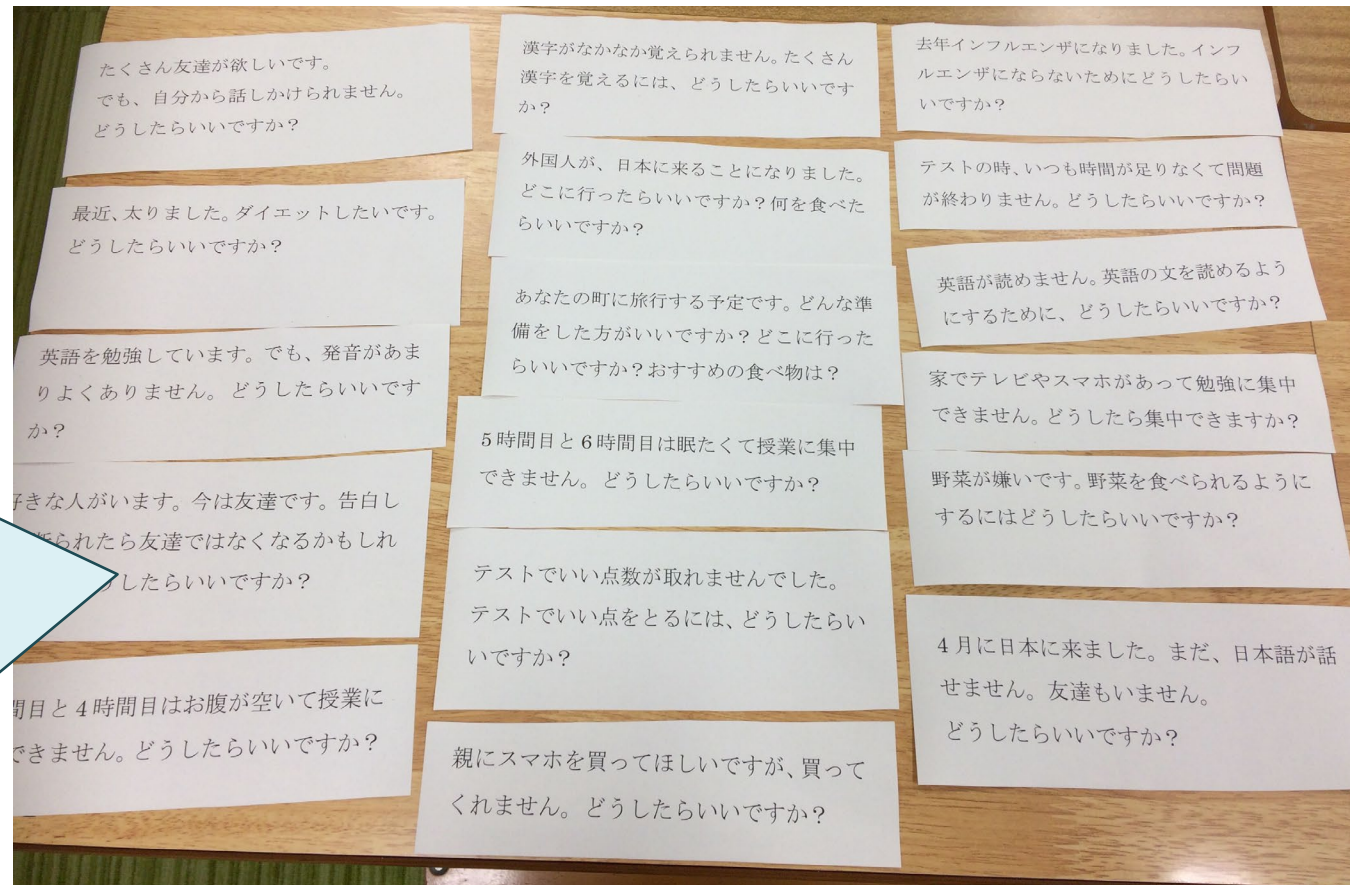 たくさん友達が欲しいです。
でも、自分から話しかけられません。
どうしたらいいですか？
最近、太りました。ダイエットしたいです。
どうしたらいいですか？
英語を勉強しています。でも、発音があま
りよくありません。どうしたらいいです
か？
きな人がいます。今は友達です。告白し
られたら友達ではなくなるかもしれ
したらいいですか？
間目と４時間目はお腹が空いて授業に
できません。どうしたらいいですか？
漢字がなかなか覚えられません。たくさん
漢字を覚えるには、どうしたらいいです
か？
外国人が、日本に来ることになりました。
どこに行ったらいいですか？何を食べた
らいいですか？
あなたの町に旅行する予定です。どんな準
備をした方がいいですか？どこに行った
らいいですか？おすすめの食べ物は？
５時間目と６時間目は眠たくて授業に集中
できません。どうしたらいいですか？
テストでいい点数が取れませんでした。
テストでいい点をとるには、どうしたらい
いですか？
親にスマホを買ってほしいですが、買って
くれません。どうしたらいいですか？
去年インフルエンザになりました。インフ
ルエンザにならないためにどうしたらい
いですか？
テストの時、いつも時間が足りなくて問題
が終わりません。どうしたらいいですか？
英語が読めません。英語の文を読めるよう
にするために、どうしたらいいですか？
家でテレビやスマホがあって勉強に集中
できません。どうしたら集中できますか？
野菜が嫌いです。野菜を食べられるように
するにはどうしたらいいですか？
４月に日本に来ました。まだ、日本語が話
せません。友達もいません。
どうしたらいいですか？